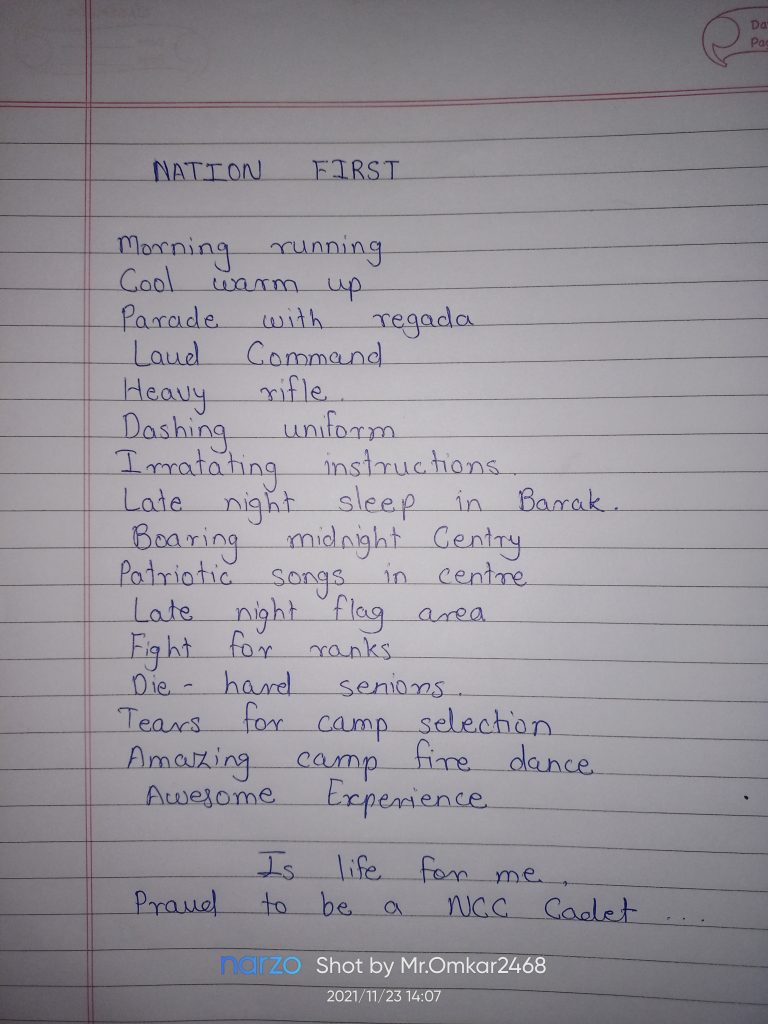 Da
Pag
NATION FIRST
Morning running
Cool warm up
Parade with regada
Loud Command
Heavy rifle.
Dashing uniform
Irratating instructions.
Late night sleep in Barak.
Boaring midnight Centry
Patriotic songs in centre
Late night flag area
Fight for ranks
Die - hard seniors.
Tears for camp selection
Amazing camp fire dance
Awesome Experience
Is life for me,
Proud to be a NCC Cadet ...
narzo Shot by Mr.Omkar2468
2021/11/23 14:07